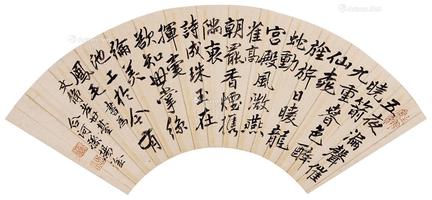 五夜漏聲催
曉箭
九重春色醉
仙桃
旌旗日暖龍
蛇動
宮殿風微燕
雀高
朝罷香煙攜
滿袖
詩成珠玉在
揮毫
欲知世掌絲
綸美
池上於今有
鳳毛